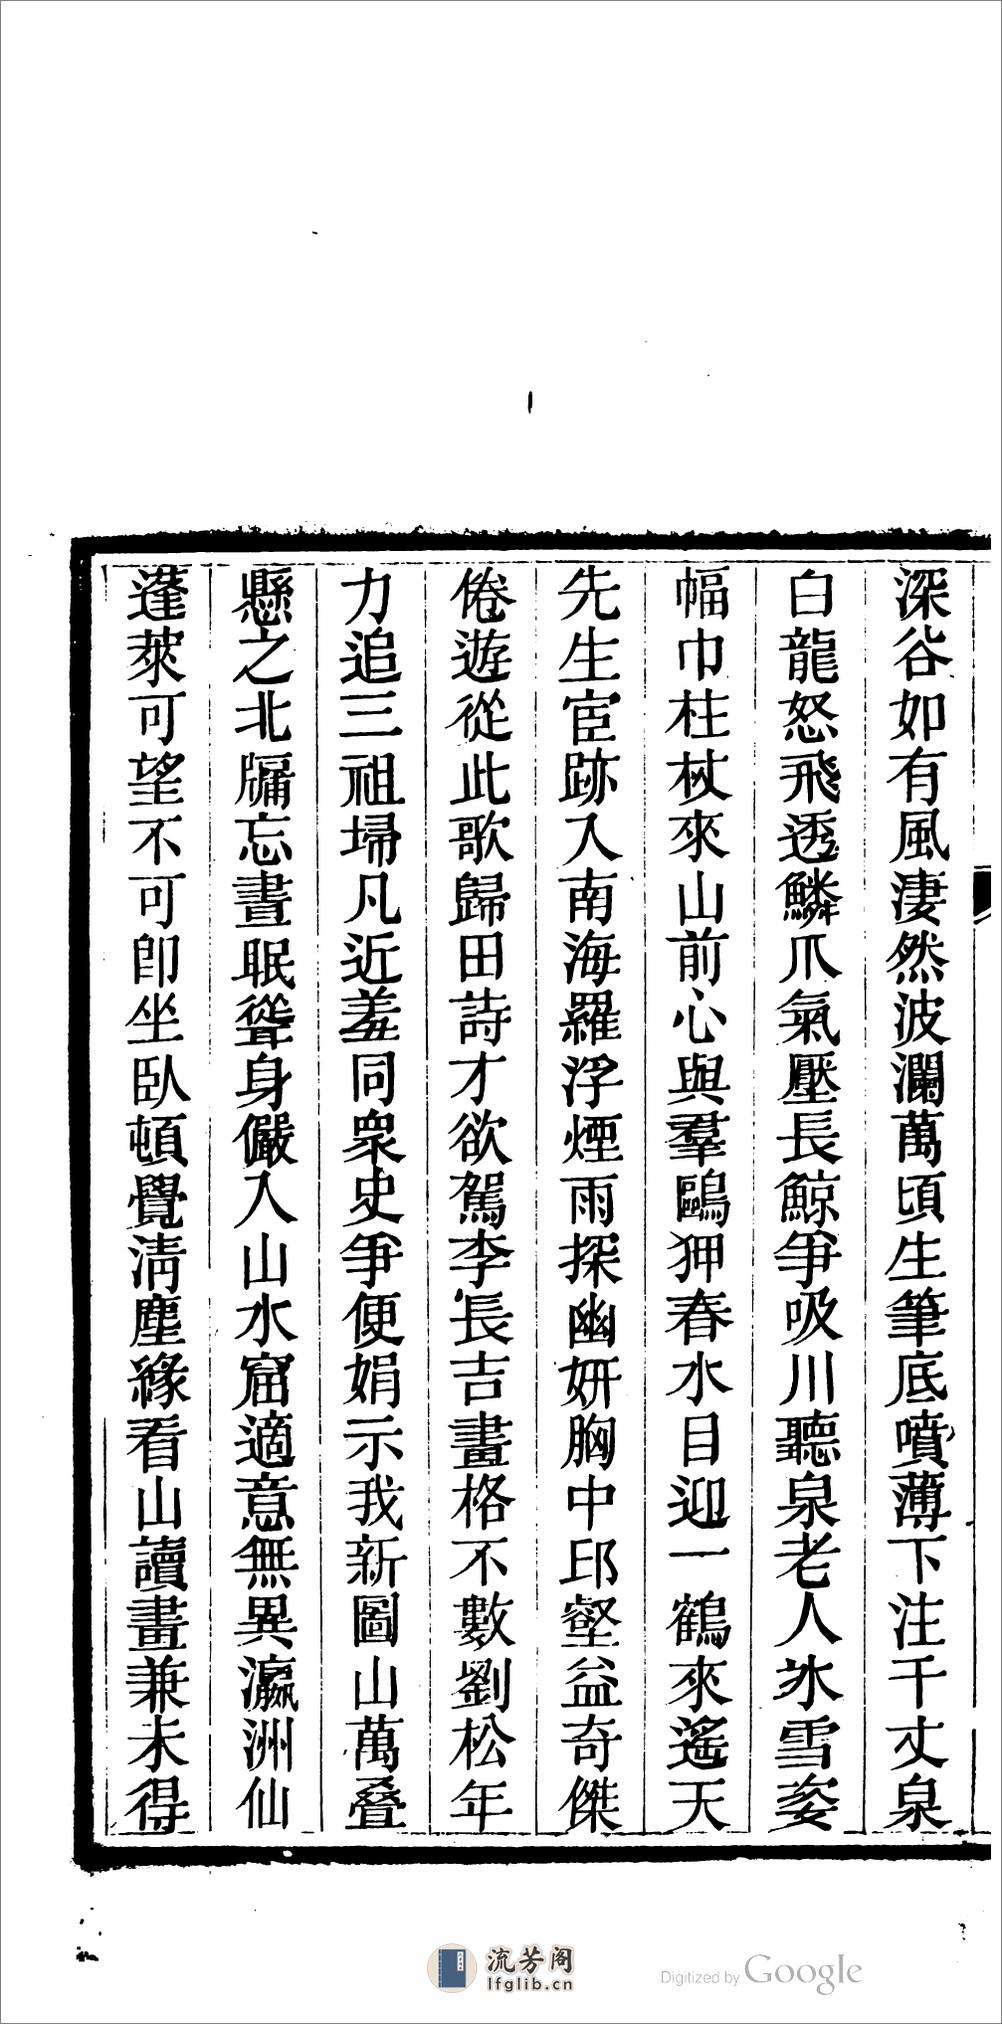 深谷如有風淒然波瀾萬頃生筆底噴薄下注千丈泉
白龍怒飛透鱗爪氣壓長鯨爭吸川聽泉老人氷雪姿
幅巾柱杖來山前心與羣鷗狎春水目迎一鶴來遙天
先生宦跡入南海羅浮煙雨探幽妍胸中邱壑益奇傑
倦遊從此歌歸田詩才欲駕李長吉畫格不數劉松年
力追三祖埽凡近羞同衆史爭便娟示我新圖山萬疊
懸之北牖忘晝眠聳身儼入山水窟適意無異瀛洲仙
蓬萊可望不可卽坐臥頓覺淸塵緣看山讀畫兼未得
流芳阁
lfglib.cn
Digitized by Google